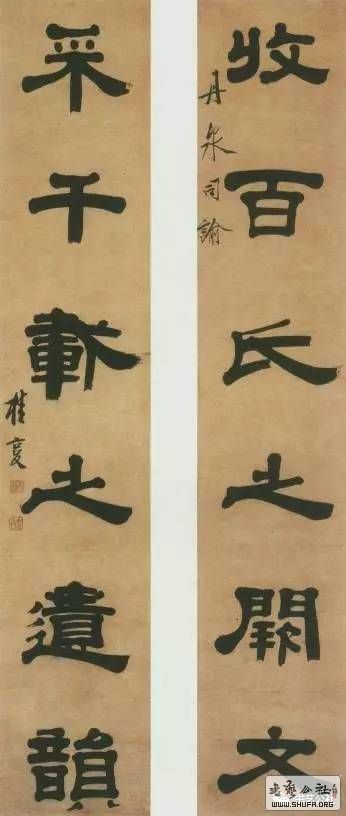 收百氏之闕文
丹泉司諭
采千載之遺韻
桂复
书艺公社
WWW.SHUFA.ORG